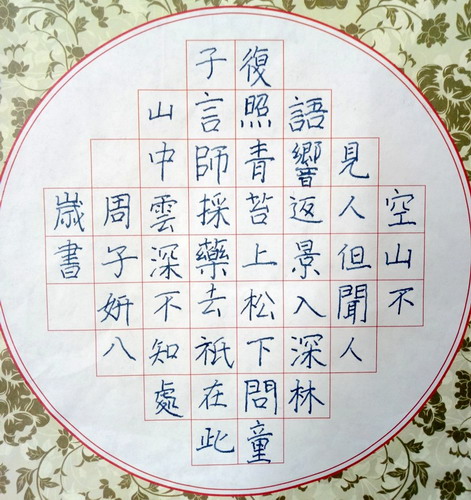 空山不
見人但聞人
語響返景入深林
復照青苔上松下問童
子言師採藥去祇在此
山中雲深不知處
周子妍八
歲書